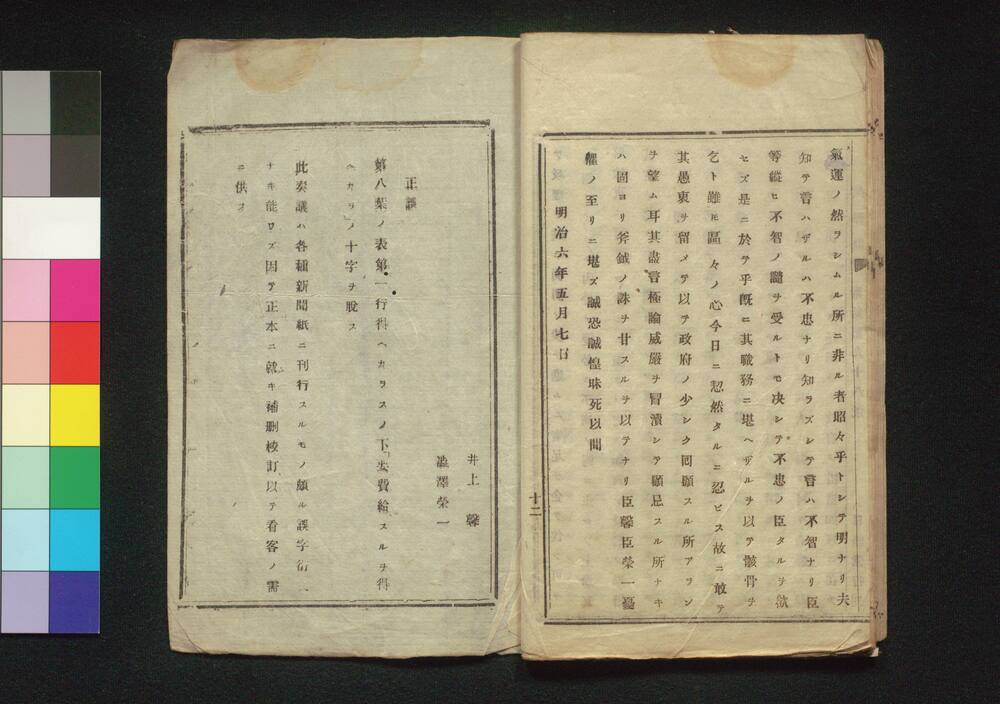 氣運ノ然ヲシムル所ニ非ル者昭々乎トシテ明ナリ夫
知テ言ハザルハ不忠ナリ知ラズシテ言ハ不智ナリ臣
等縱ヒ不智ノ譴ヲ受ルトモ决シテ不忠ノ臣タルヲ欲
セズ是ニ於テ乎既ニ其職務ニ堪ヘザルヲ以テ骸骨ヲ
乞ト雖𪜈區々ノ心今日ニ恝然タルニ忍ビス故ニ敢テ
其愚衷ヲ留メテ以テ政府ノ少シク囘顧スル所アラン
ヲ望ム耳其盡言極論威嚴ヲ冒瀆シテ顧忌スル所ナキ
ハ固ヨリ斧鉞ノ誅ヲ甘スルヲ以テナリ臣馨臣榮一憂
懼ノ至リニ堪ズ誠恐誠惶昧死以聞
明治六年五月七日
十二
井上馨
澁澤榮一
正誤
第八葉ノ表第一行得ヘカラスノ下「費給スルヲ得
ヘカラ」ノ十字ヲ脫ス
此奏議ハ各種新聞紙ニ刊行スルモノ頗ル誤字衍
ナキ能ワズ因テ正本ニ就キ補删校訂以テ看客ノ需
ニ供ス